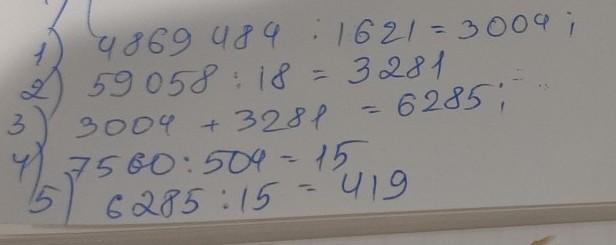 1) 4869 484 : 1621 = 3004;
2) 59058 : 18 = 3281
3) 3004 + 3281 = 6285;
4) 7560 : 504 = 15
5) 6285 : 15 = 419